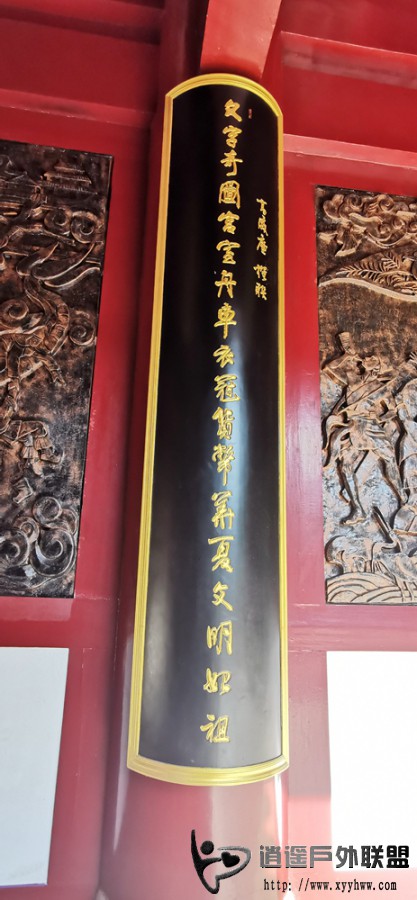 文字奇圖宮室舟車衣冠貨幣華夏文明始祖
逍遥戶外联盟
http: //www.xyyhww.com